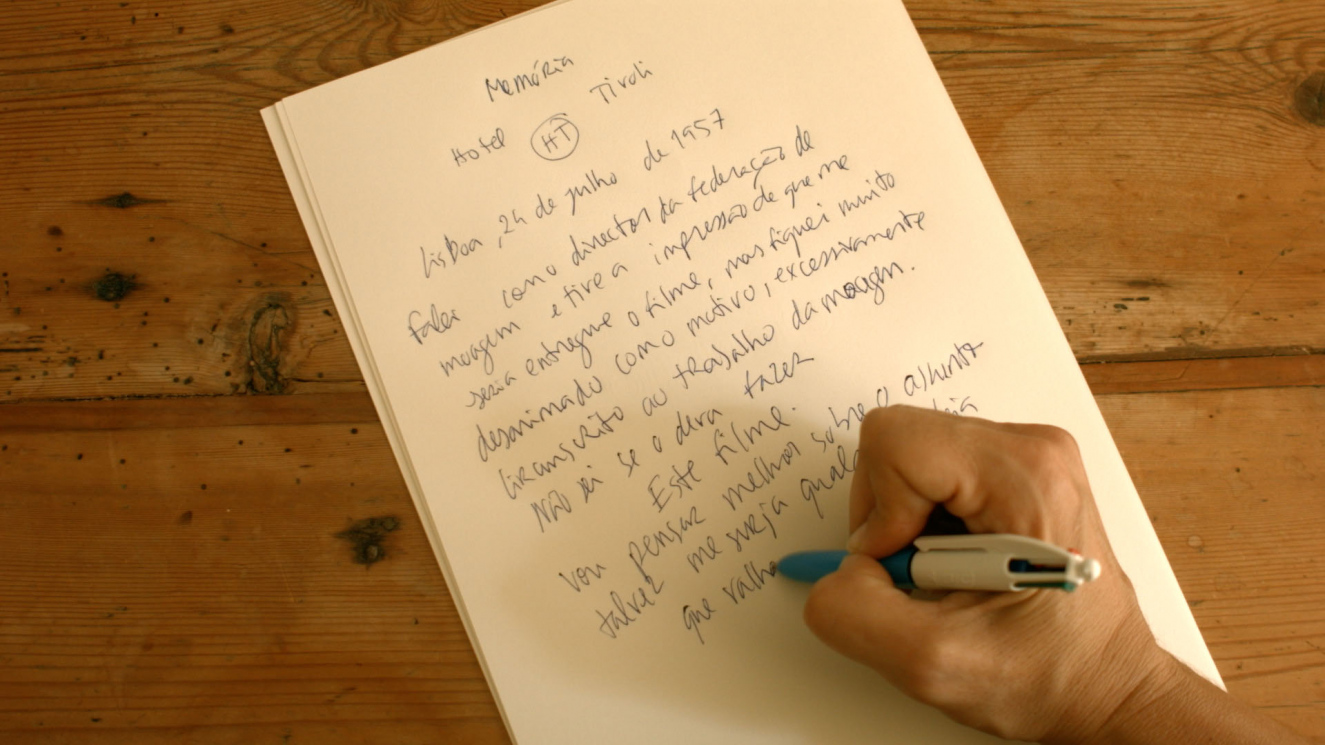 Memória
Hotel HT Tivoli
Lisboa, 24 de julho de 1957
Falei com o director da federação de
moagem e tive a impressão de que me
seria entregue o filme, mas fiquei muito
desanimado com o motivo, excessivamente
circunscrito ao trabalho da moagem.
Não sei se o deva fazer
Este filme.
Vou pensar melhor sobre o assunto
talvez me surja
que valha